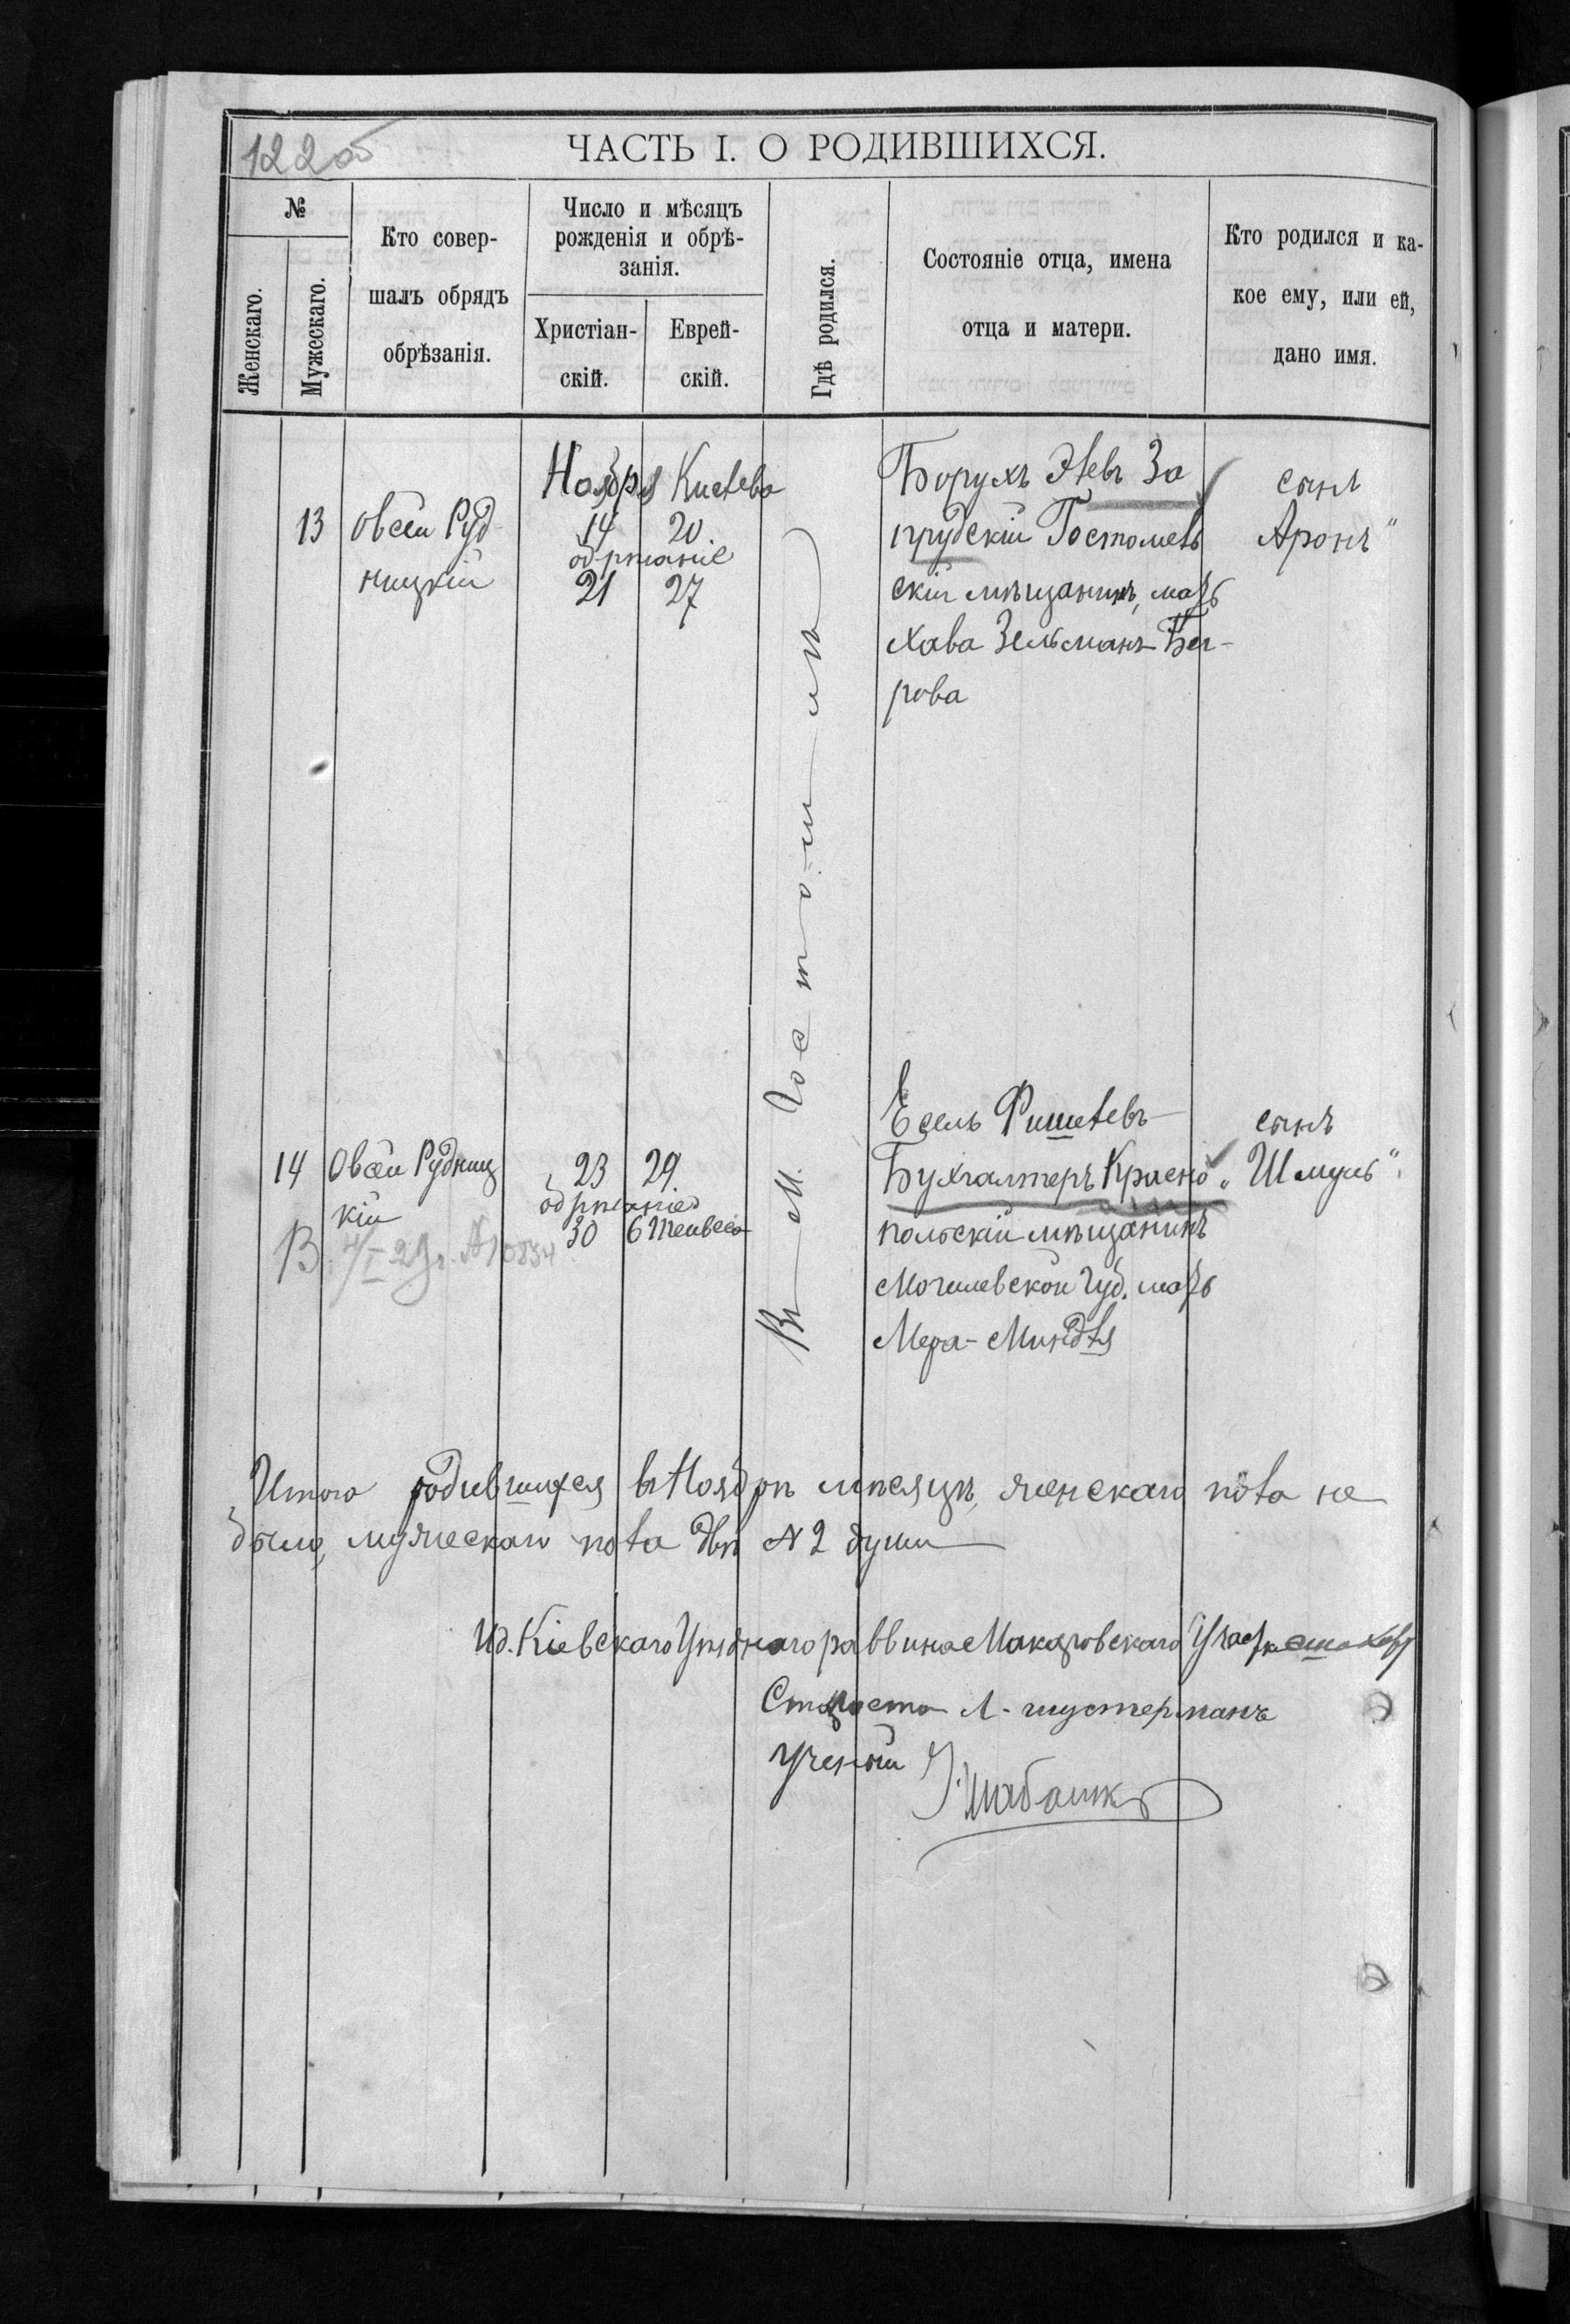 122 об
ЧАСТЬ I. О РОДИВШИХСЯ.
№
Женскаго.
Мужескаго.
Кто совер-
шалъ обрядъ
обрѣзанія.
Число и мѣсяцъ
рожденія и обрѣ-
занія.
Христіан-
скій.
Еврей-
скій.
Гдѣ родился.
Состояніе отца, имена
отца и матери.
Кто родился и ка-
кое ему, или ей,
дано имя.
Ноября Кислева
13 Овсей Руд
ницкій
14 20
обрѣзаніе
21 27
Въ М. Гостомлѣ
Борухъ Лейвъ За
прудскій Гостомель
скій мѣщанинъ, мать
Хава Зельманъ Бе-
рова
сынъ
Аронъ"
14 Овсей Рудниц
кій
23 29
обрѣзаніе
30 6 Тейвеса
В. 4/I 29 г. №10834
Есель Фишелевъ
Бухгалтеръ Красно
польскій мѣщанинъ
Могилевской губ. мать
Мера-Миндля
сынъ
"Шмуль"
Итого родившихся въ Ноябрѣ мѣсяцѣ, женскаго пола не
было, мужескаго пола двѣ № 2 души
Ид. Кіевскаго Уѣзднаго раввина Макаровскаго Участка
Староста Л. Шустерманъ
Ученый